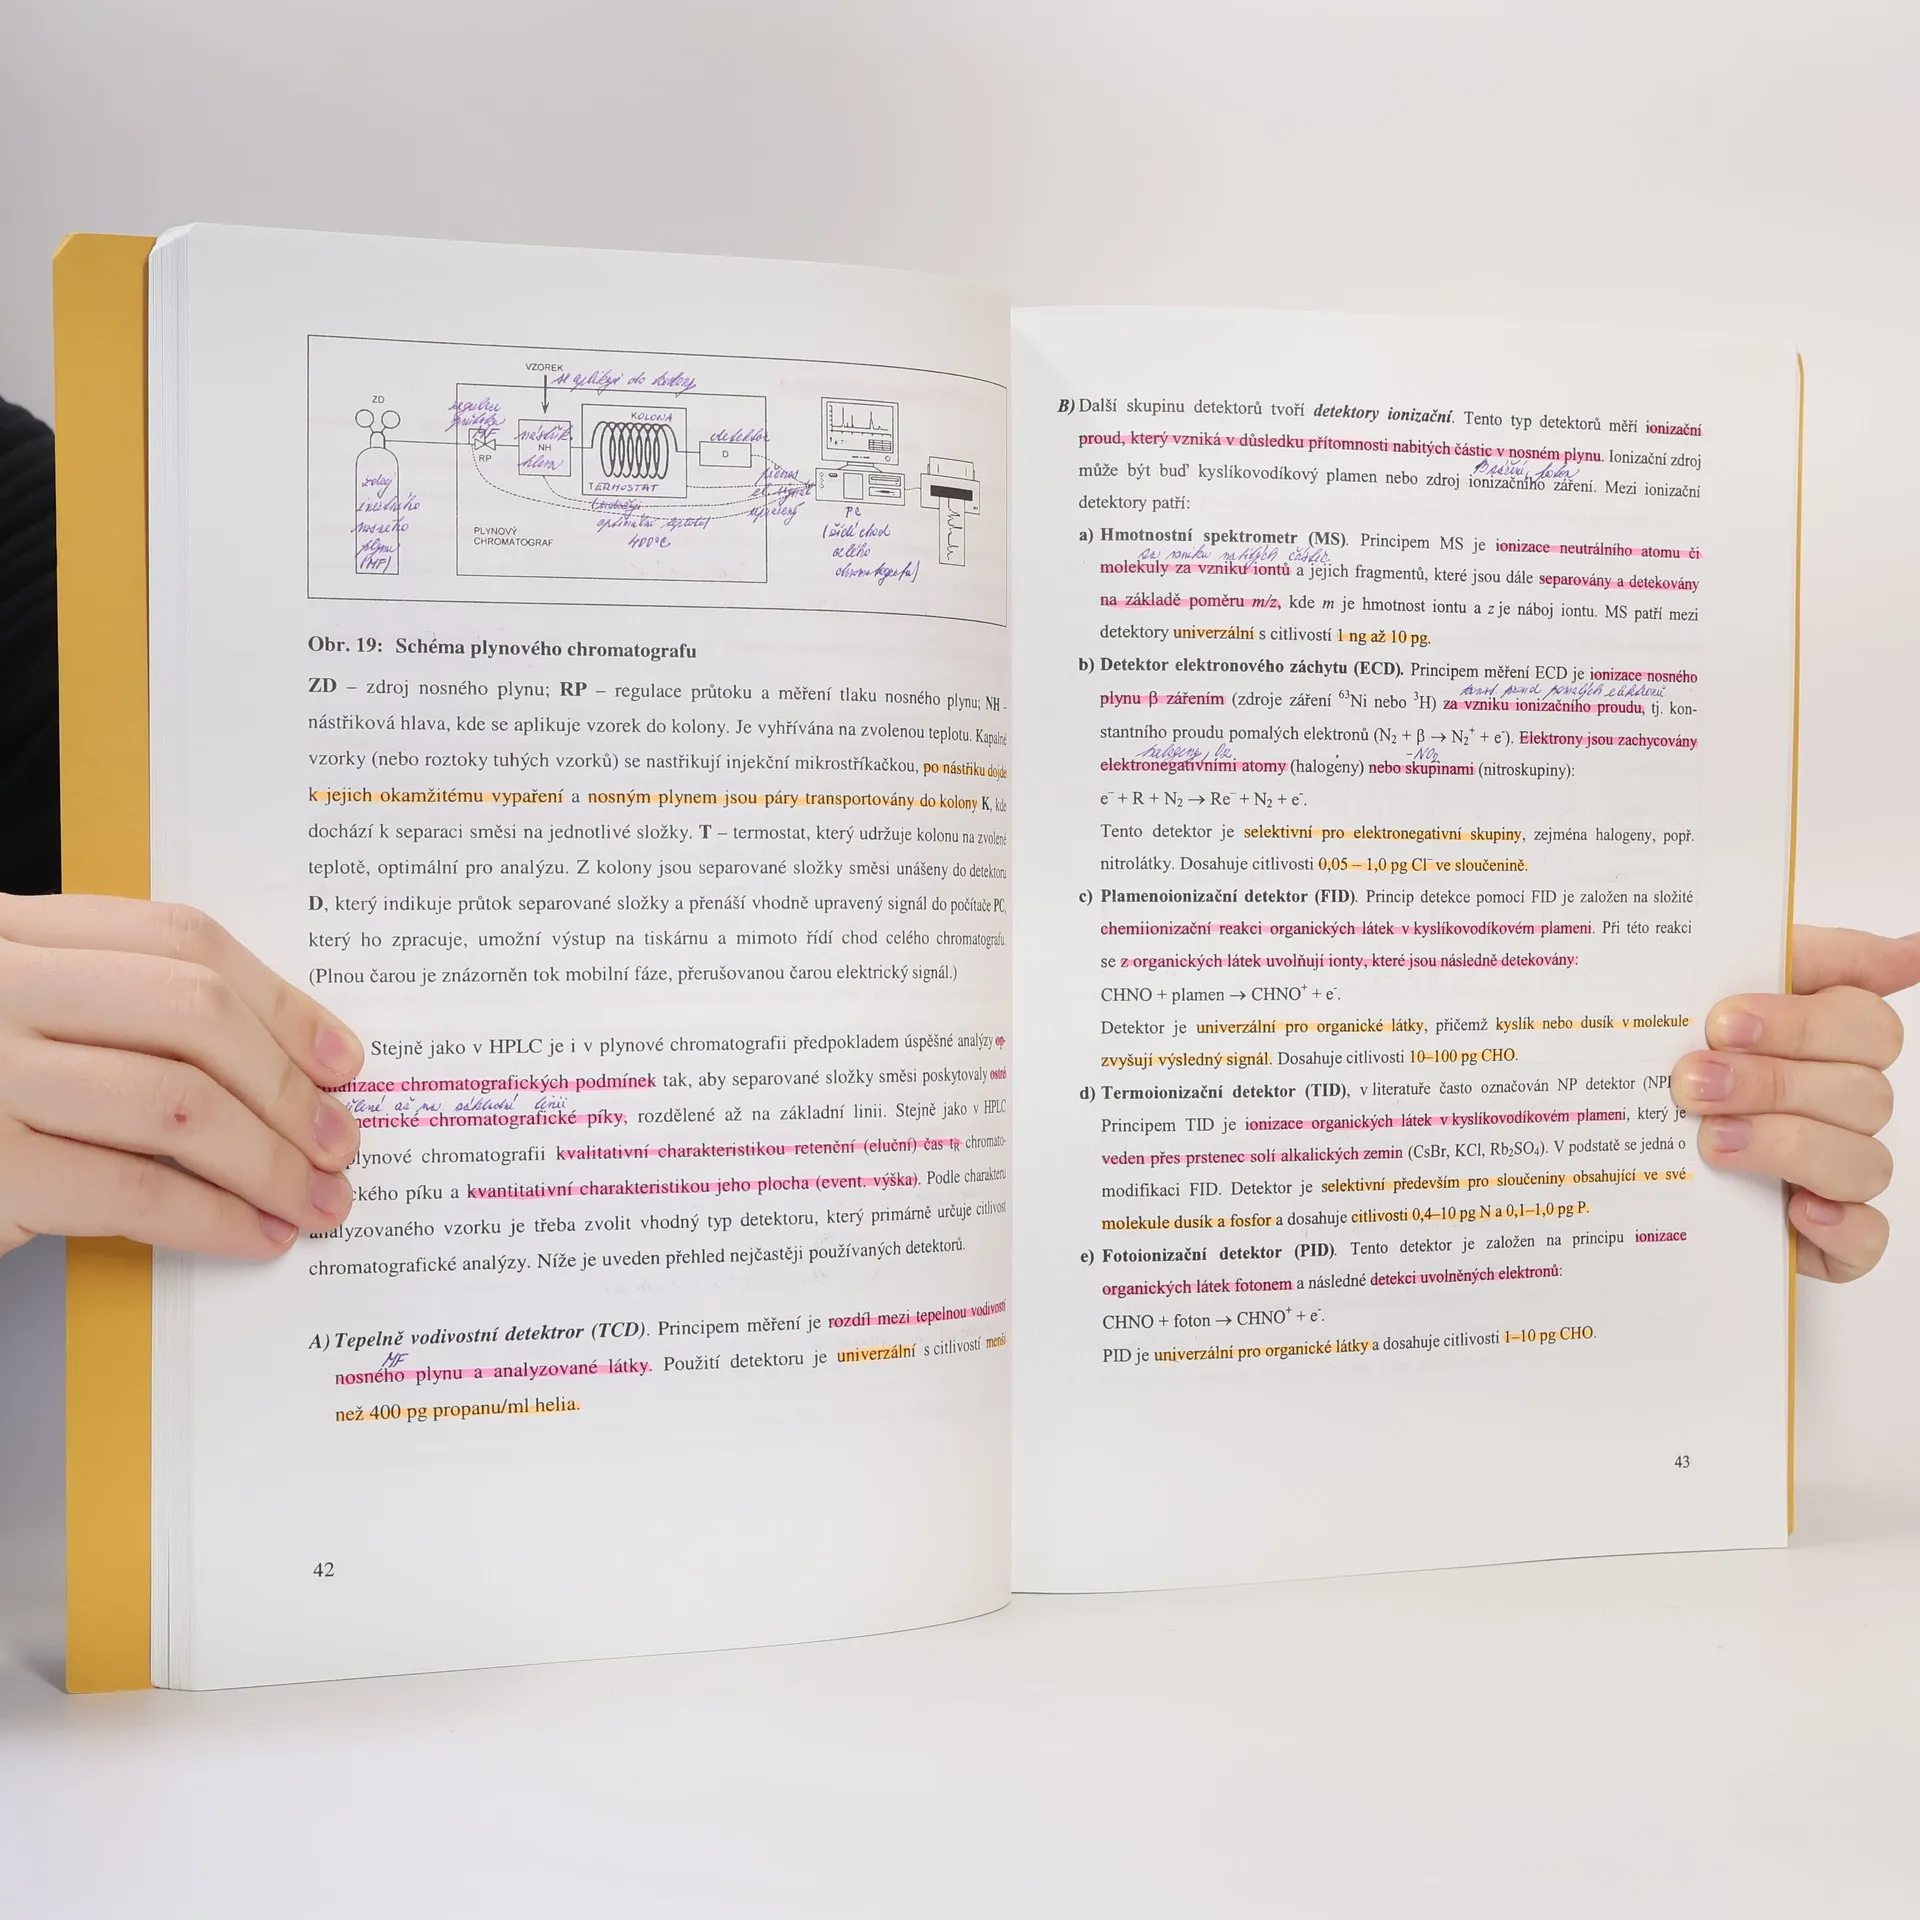 VZOREK
se aplikuje do kolony
ZD
regulace
průtoku
MF
RP
nástřik.
NH
hlava
KOLONA
TERMOSTAT
detektor
D
přenos
el. signál
upravený
optimální teplota
400°C
zdroj
inertního
nosného
plynu
(MF)
PLYNOVÝ
CHROMATOGRAF
PC
(řídí chod
celého
chromatografu)
Obr. 19: Schéma plynového chromatografu
ZD – zdroj nosného plynu; RP – regulace průtoku a měření tlaku nosného plynu; NH –
nástřiková hlava, kde se aplikuje vzorek do kolony. Je vyhřívána na zvolenou teplotu. Kapalné
vzorky (nebo roztoky tuhých vzorků) se nastřikují injekční mikrostříkačkou, po nástřiku dojde
k jejich okamžitému vypaření a nosným plynem jsou páry transportovány do kolony K, kde
dochází k separaci směsi na jednotlivé složky. T – termostat, který udržuje kolonu na zvolené
teplotě, optimální pro analýzu. Z kolony jsou separované složky směsi unášeny do detektoru
D, který indikuje průtok separované složky a přenáší vhodně upravený signál do počítače PC,
který ho zpracuje, umožní výstup na tiskárnu a mimoto řídí chod celého chromatografu.
(Plnou čarou je znázorněn tok mobilní fáze, přerušovanou čarou elektrický signál.)
Stejně jako v HPLC je i v plynové chromatografii předpokladem úspěšné analýzy op-
malizace chromatografických podmínek tak, aby separované složky směsi poskytovaly ostré
dělené až na základní linii
metrické chromatografické píky, rozdělené až na základní linii. Stejně jako v HPLC
plynové chromatografii kvalitativní charakteristikou retenční (eluční) čas tR chromato-
ckého píku a kvantitativní charakteristikou jeho plocha (event. výška). Podle charakteru
analyzovaného vzorku je třeba zvolit vhodný typ detektoru, který primárně určuje citlivost
chromatografické analýzy. Níže je uveden přehled nejčastěji používaných detektorů.
A) Tepelně vodivostní detektror (TCD). Principem měření je rozdíl mezi tepelnou vodivostí
MF
nosného plynu a analyzované látky. Použití detektoru je univerzální s citlivostí menší
než 400 pg propanu/ml helia.
42
B) Další skupinu detektorů tvoří detektory ionizační. Tento typ detektorů měří ionizační
proud, který vzniká v důsledku přítomnosti nabitých částic v nosném plynu. Ionizační zdroj
β záření, foton
může být buď kyslíkovodíkový plamen nebo zdroj ionizačního záření. Mezi ionizační
detektory patří:
a) Hmotnostní spektrometr (MS). Principem MS je ionizace neutrálního atomu či
za vzniku nabitých částic
molekuly za vzniku iontů a jejich fragmentů, které jsou dále separovány a detekovány
na základě poměru m/z, kde m je hmotnost iontu a z je náboj iontu. MS patří mezi
detektory univerzální s citlivostí 1 ng až 10 pg.
b) Detektor elektronového záchytu (ECD). Principem měření ECD je ionizace nosného
konst. proud pomalých elektronů
plynu β zářením (zdroje záření ⁶³Ni nebo ³H) za vzniku ionizačního proudu, tj. kon-
stantního proudu pomalých elektronů (N₂ + β → N₂⁺ + e⁻). Elektrony jsou zachycovány
halogeny, -NO₂
elektronegativními atomy (halogény) nebo skupinami (nitroskupiny):
e⁻ + R + N₂ → Re⁻ + N₂ + e⁻.
Tento detektor je selektivní pro elektronegativní skupiny, zejména halogeny, popř.
nitrolátky. Dosahuje citlivosti 0,05 – 1,0 pg Cl⁻ ve sloučenině.
c) Plamenoionizační detektor (FID). Princip detekce pomocí FID je založen na složité
chemiionizační reakci organických látek v kyslíkovodíkovém plameni. Při této reakci
se z organických látek uvolňují ionty, které jsou následně detekovány:
CHNO + plamen → CHNO⁺ + e⁻.
Detektor je univerzální pro organické látky, přičemž kyslík nebo dusík v molekule
zvyšují výsledný signál. Dosahuje citlivosti 10–100 pg CHO.
d) Termoionizační detektor (TID), v literatuře často označován NP detektor (NP
Principem TID je ionizace organických látek v kyslíkovodíkovém plameni, který je
veden přes prstenec solí alkalických zemin (CsBr, KCl, Rb₂SO₄). V podstatě se jedná o
modifikaci FID. Detektor je selektivní především pro sloučeniny obsahující ve své
molekule dusík a fosfor a dosahuje citlivosti 0,4–10 pg N a 0,1–1,0 pg P.
e) Fotoionizační detektor (PID). Tento detektor je založen na principu ionizace
organických látek fotonem a následné detekci uvolněných elektronů:
CHNO + foton → CHNO⁺ + e⁻.
PID je univerzální pro organické látky a dosahuje citlivosti 1–10 pg CHO.
43